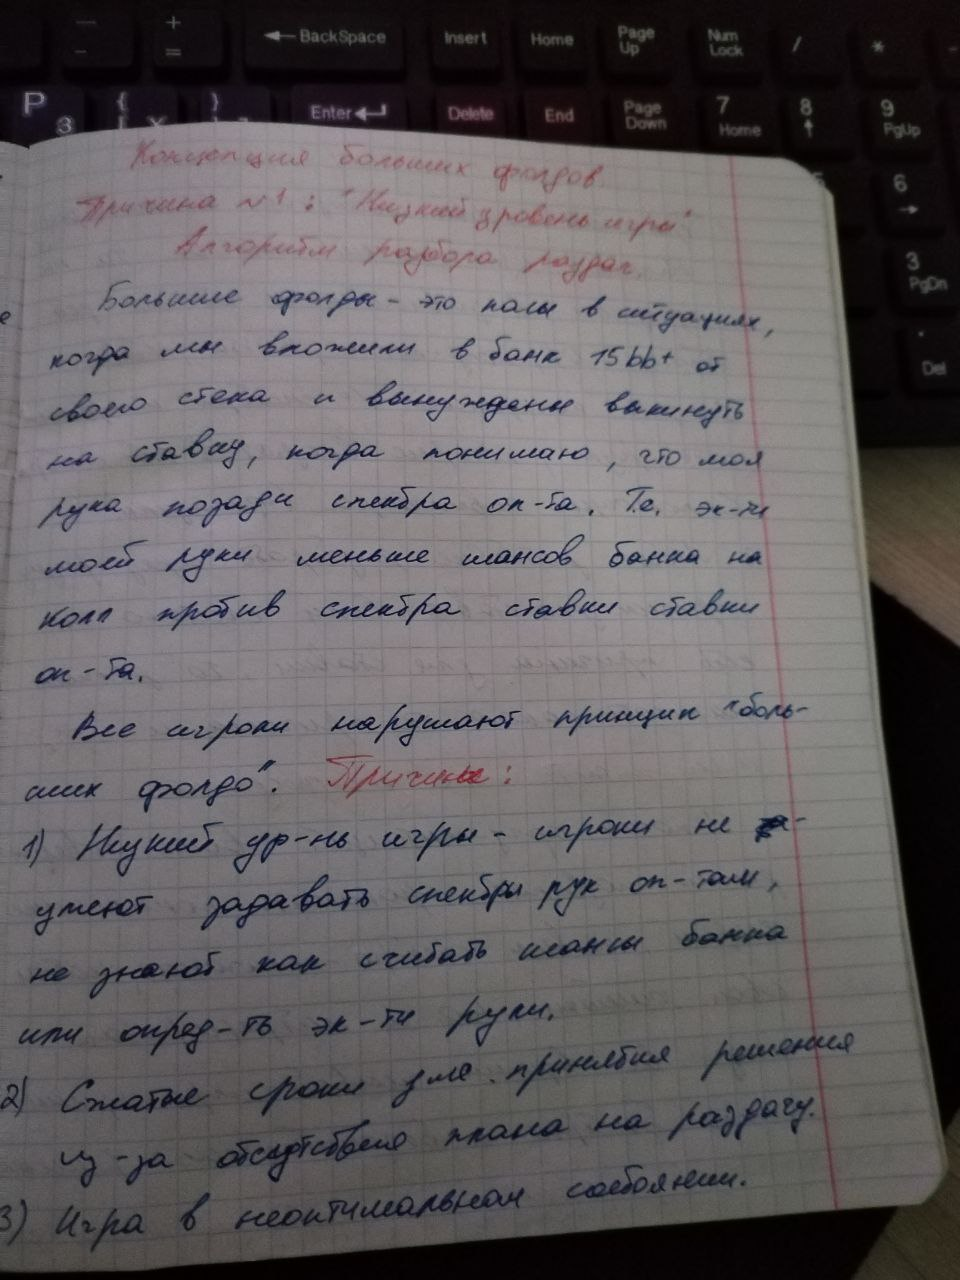 BackSpace
Insert
Home
Page Up
Num Lock
/
*
-
+
=
P
З
{
[
Х
}
]
Enter
Delete
End
Page Down
7
Home
8
9
PgUp
6
3
PgDn
.
Del
Концепция больших фолдов.
Причина №1: "Низкий уровень игры"
Алгоритм разбора раздач.
Большие фолды - это пасы в ситуациях,
когда мы вложили в банк 15bb+ от
своего стека и вынуждены выкинуть
на ставку, когда понимаю, что моя
рука позади спектра оп-та. Т.е. эк-ти
моей руки меньше шансов банка на
колл против спектра ставки ставки
оп-та.
Все игроки нарушают принцип "боль-
ших фолдо". Причины:
1) Низкий ур-нь игры - игроки не
умеют задавать спектры рук оп-там,
не знают как считать шансы банка
или опред-ть эк-ти руки.
2) Сжатые сроки для принятия решения
из-за отсутствия плана на раздачу.
3) Игра в неоптимальном состоянии.